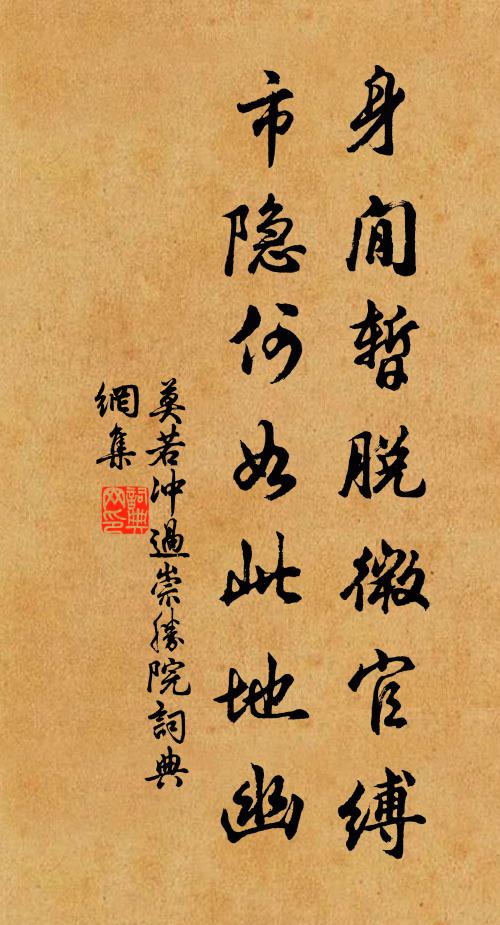 身閒暫脱微官縛
市隐何如此地幽
莫若冲過崇勝院詞典
網集
詞典
网印